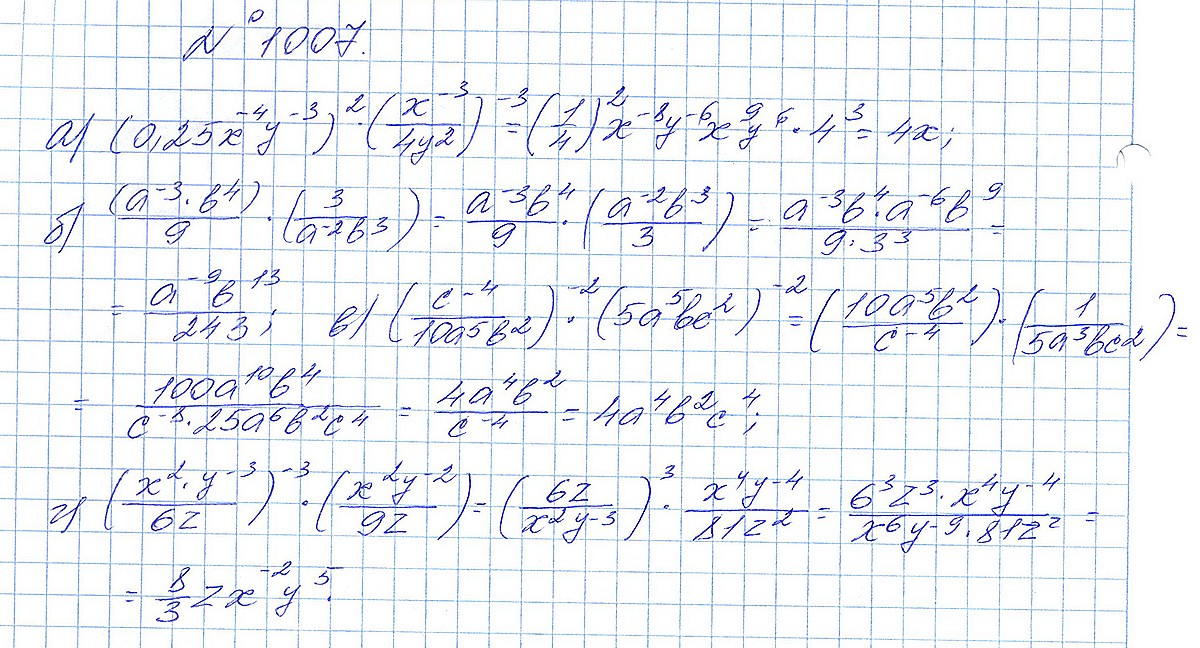 № 1007.
а) (0,25x⁻⁴y⁻³)² · (x⁻³/4y²)⁻³ = (1/4)² x⁻⁸y⁻⁶x⁹y⁶ · 4³ = 4x;
б) (a⁻³·b⁴)/9 · (3/a⁻²b³) = a⁻³b⁴/9 · (a⁻²b³/3) = a⁻³b⁴·a⁻⁶b⁹/9·3³ =
= a⁻⁹b¹³/243; в) (c⁻⁴/10a⁵b²)⁻² · (5a⁵bc²)⁻² = (10a⁵b²/c⁻⁴) · (1/5a³bc²) =
= 100a¹⁰b⁴/c⁻⁸·25a⁶b²c⁴ = 4a⁴b²/c⁻⁴ = 4a⁴b²c⁴;
г) (x²·y⁻³/6z)⁻³ · (x²y⁻²/9z) = (6z/x²y⁻³)³ · x⁴y⁻⁴/81z² = 6³z³·x⁴y⁻⁴/x⁶y⁻⁹·81z² =
= 8/3 zx⁻²y⁵.